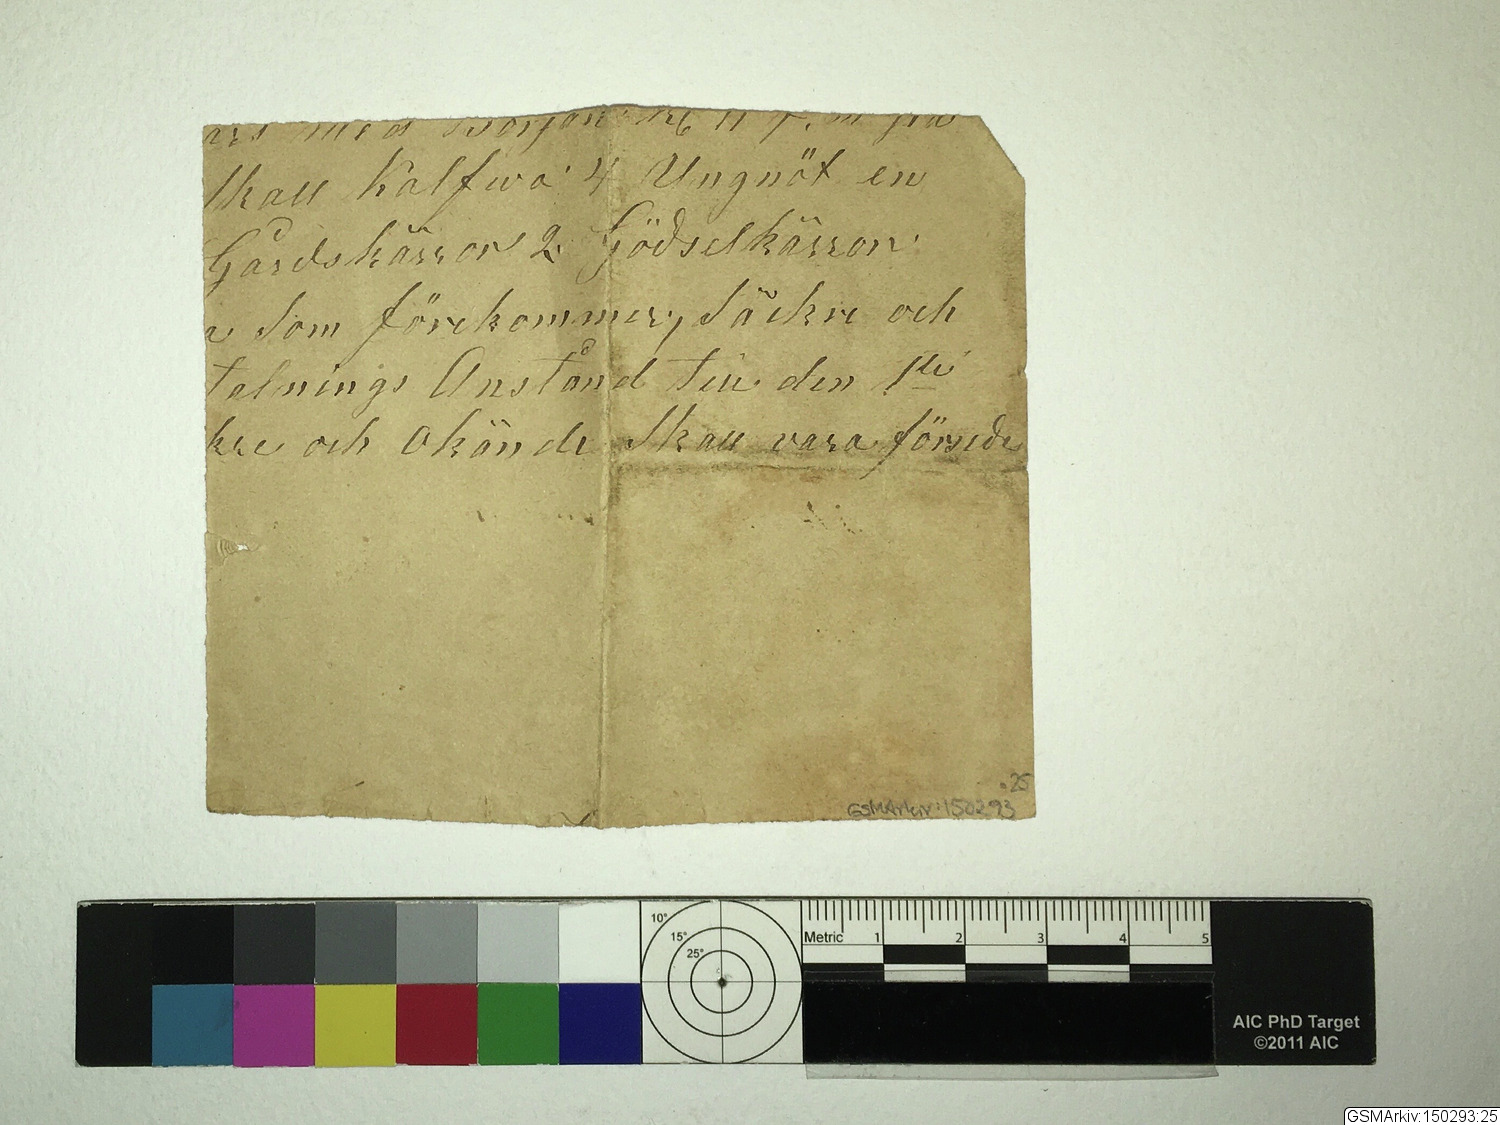 med början
Skall Kalfwa 4 Ungnöt en
Gårdskärror 2 Gödselkärror
a som förekommer, Säckre och
talnings Anstånd till den 1sta
kre och Okände Skall vara försedde
.25
GSMArkiv:150293
10°
15°
25°
Metric 1 2 3 4 5
AIC PhD Target
©2011 AIC
GSMArkiv:150293:25